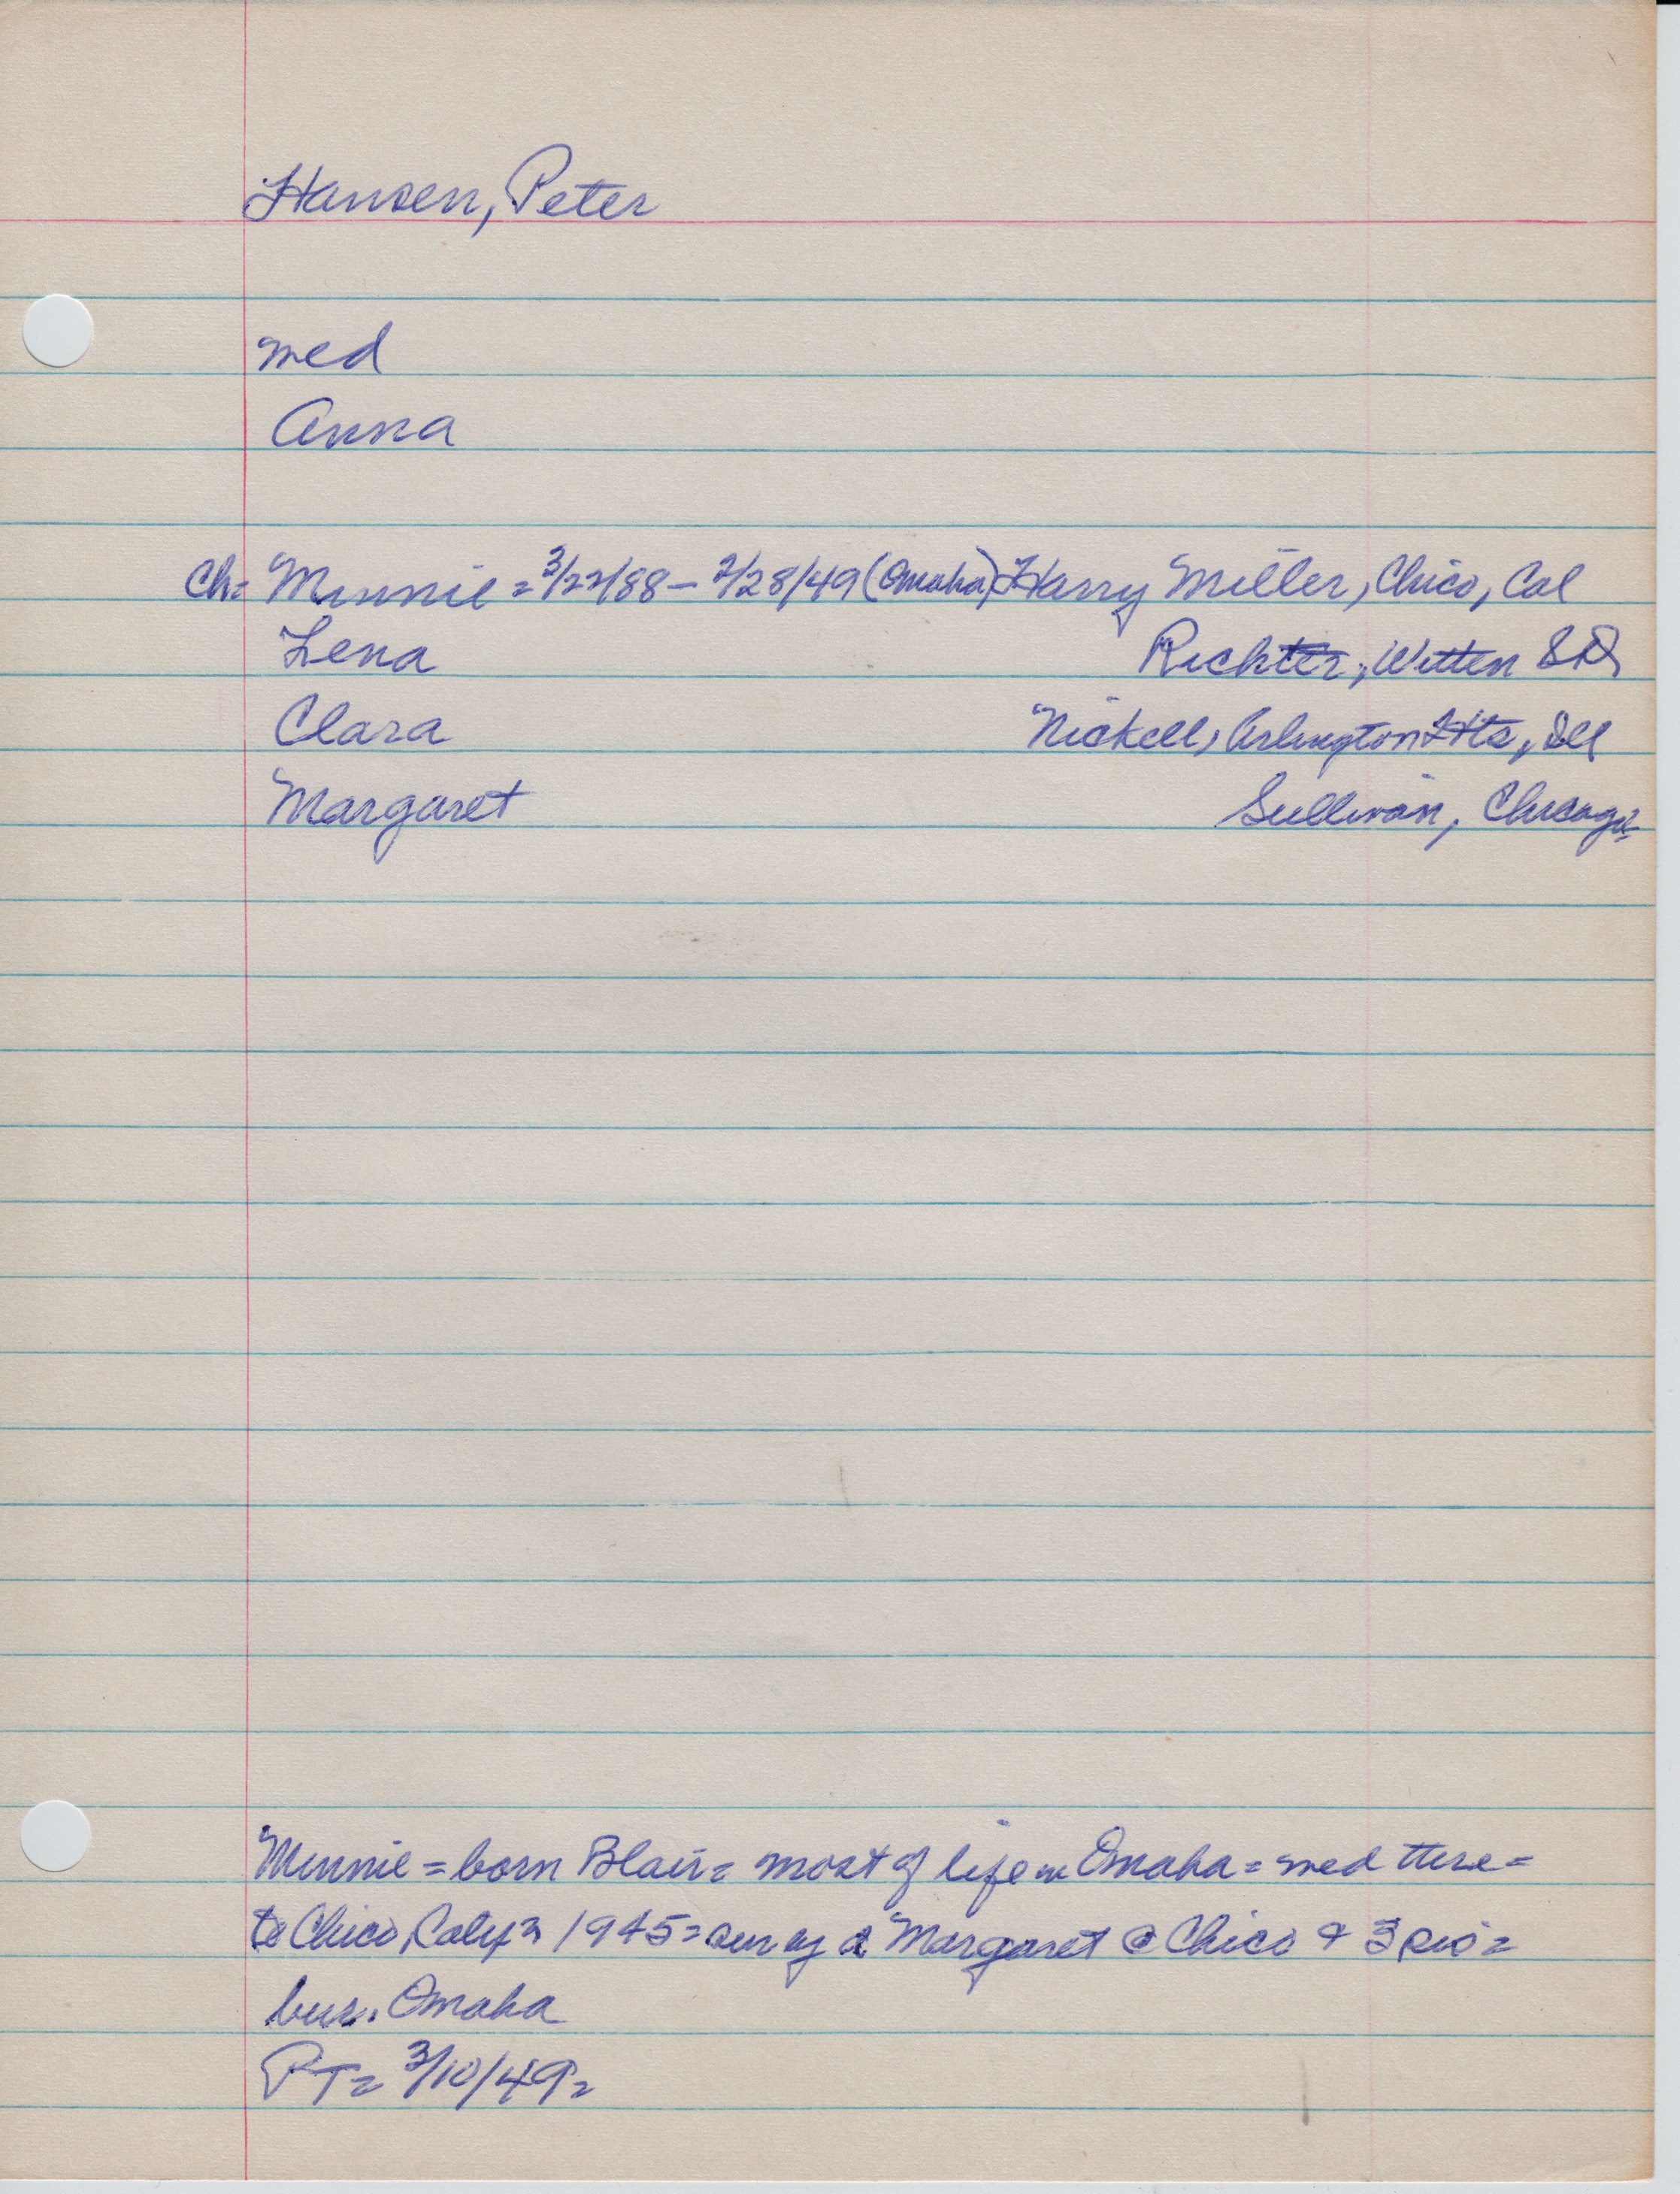 Hansen, Peter
med
Anna
Ch= Minnie = 3/22/88 - 2/28/49 (Omaha) Harry Miller, Chico, Cal
Lena Richter, Witten SD
Clara Nickell, Arlington Hts, Ill
Margaret Sullivan, Chicago=
Minnie = born Blair = most of life in Omaha = med there =
to Chico, Calif in 1945 = surv by d Margaret @ Chico & 3 sis =
bur. Omaha
PT= 3/10/49=